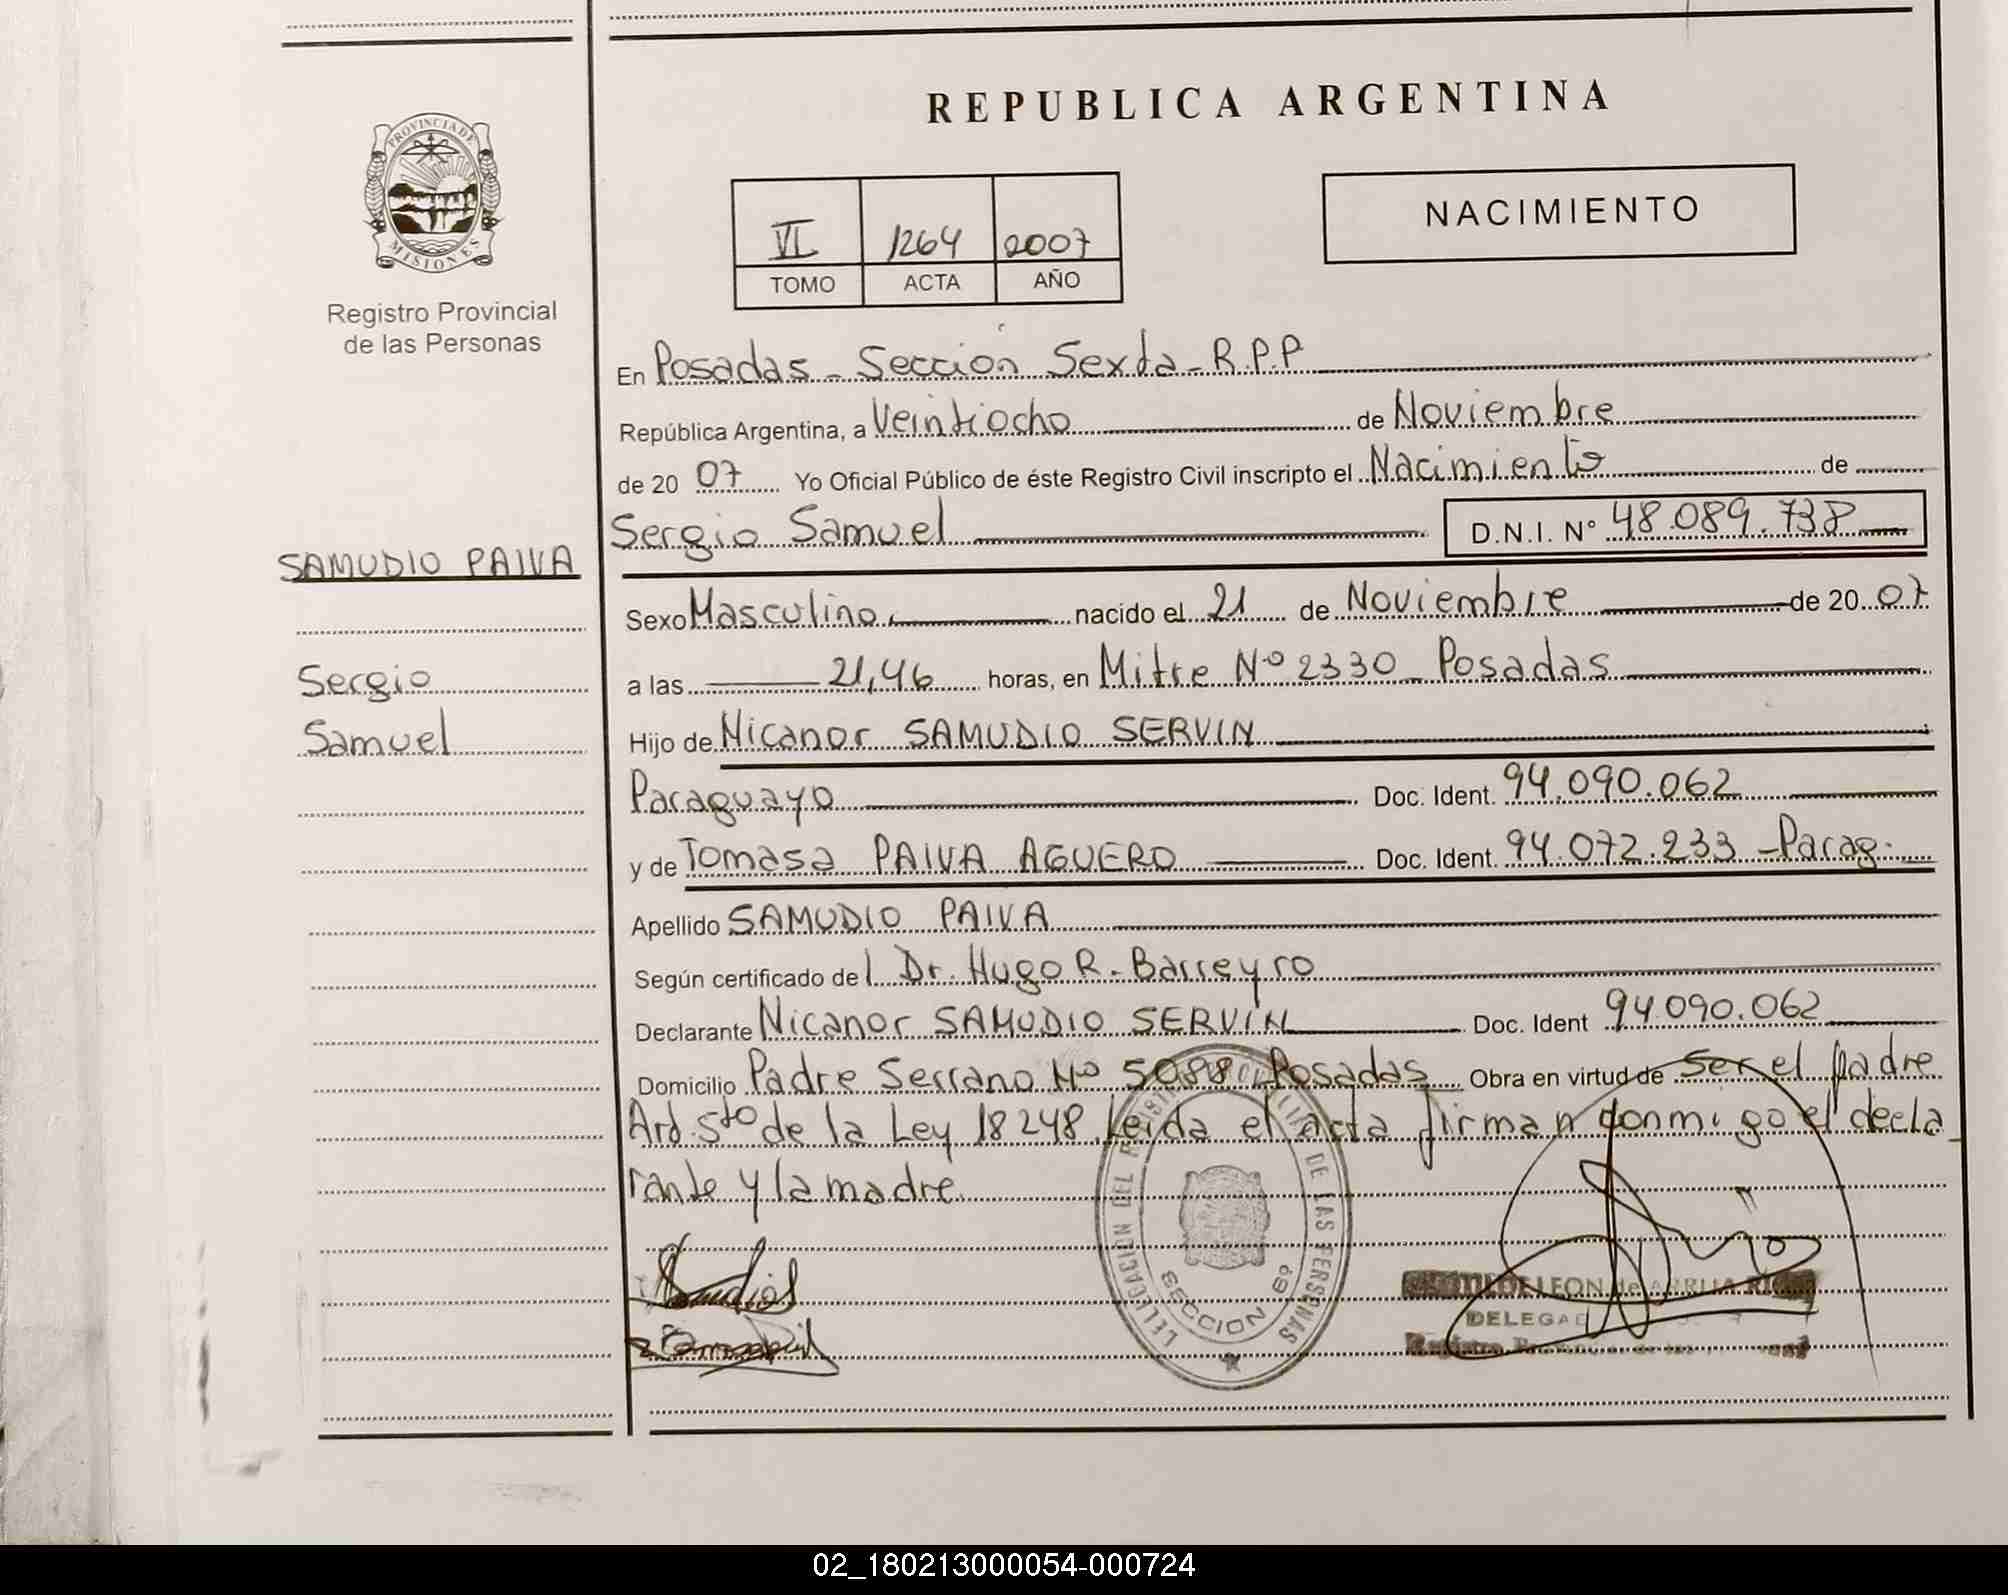 REPUBLICA ARGENTINA
PROVINCIA DE
MISIONES
Registro Provincial
de las Personas
VI 1264 2007
TOMO ACTA AÑO
NACIMIENTO
En Posadas - Sección Sexta - R.P.P
República Argentina, a Veintiocho de Noviembre
de 20 07 Yo Oficial Público de éste Registro Civil inscripto el Nacimiento de
Sergio Samuel D.N.I. Nº 48.089.738
SAMUDIO PAIVA
Sergio
Samuel
Sexo Masculino, nacido el 21 de Noviembre de 20 07
a las 21,46 horas, en Mitre Nº 2330 Posadas
Hijo de Nicanor SAMUDIO SERVIN
Paraguayo Doc. Ident. 94.090.062
y de Tomasa PAIVA AGUERO Doc. Ident. 94.072.233 - Parag.
Apellido SAMUDIO PAIVA
Según certificado del Dr. Hugo R. Barreyro
Declarante Nicanor SAMUDIO SERVIN Doc. Ident 94.090.062
Domicilio Padre Serrano Nº 5088 Posadas Obra en virtud de ser el padre
Art. 5to de la Ley 18248. Leida el acta firman conmigo el decla
rante y la madre.
DE LAS PERSONAS
SECCION 6º
LEON de
DELEGAD
02_180213000054-000724